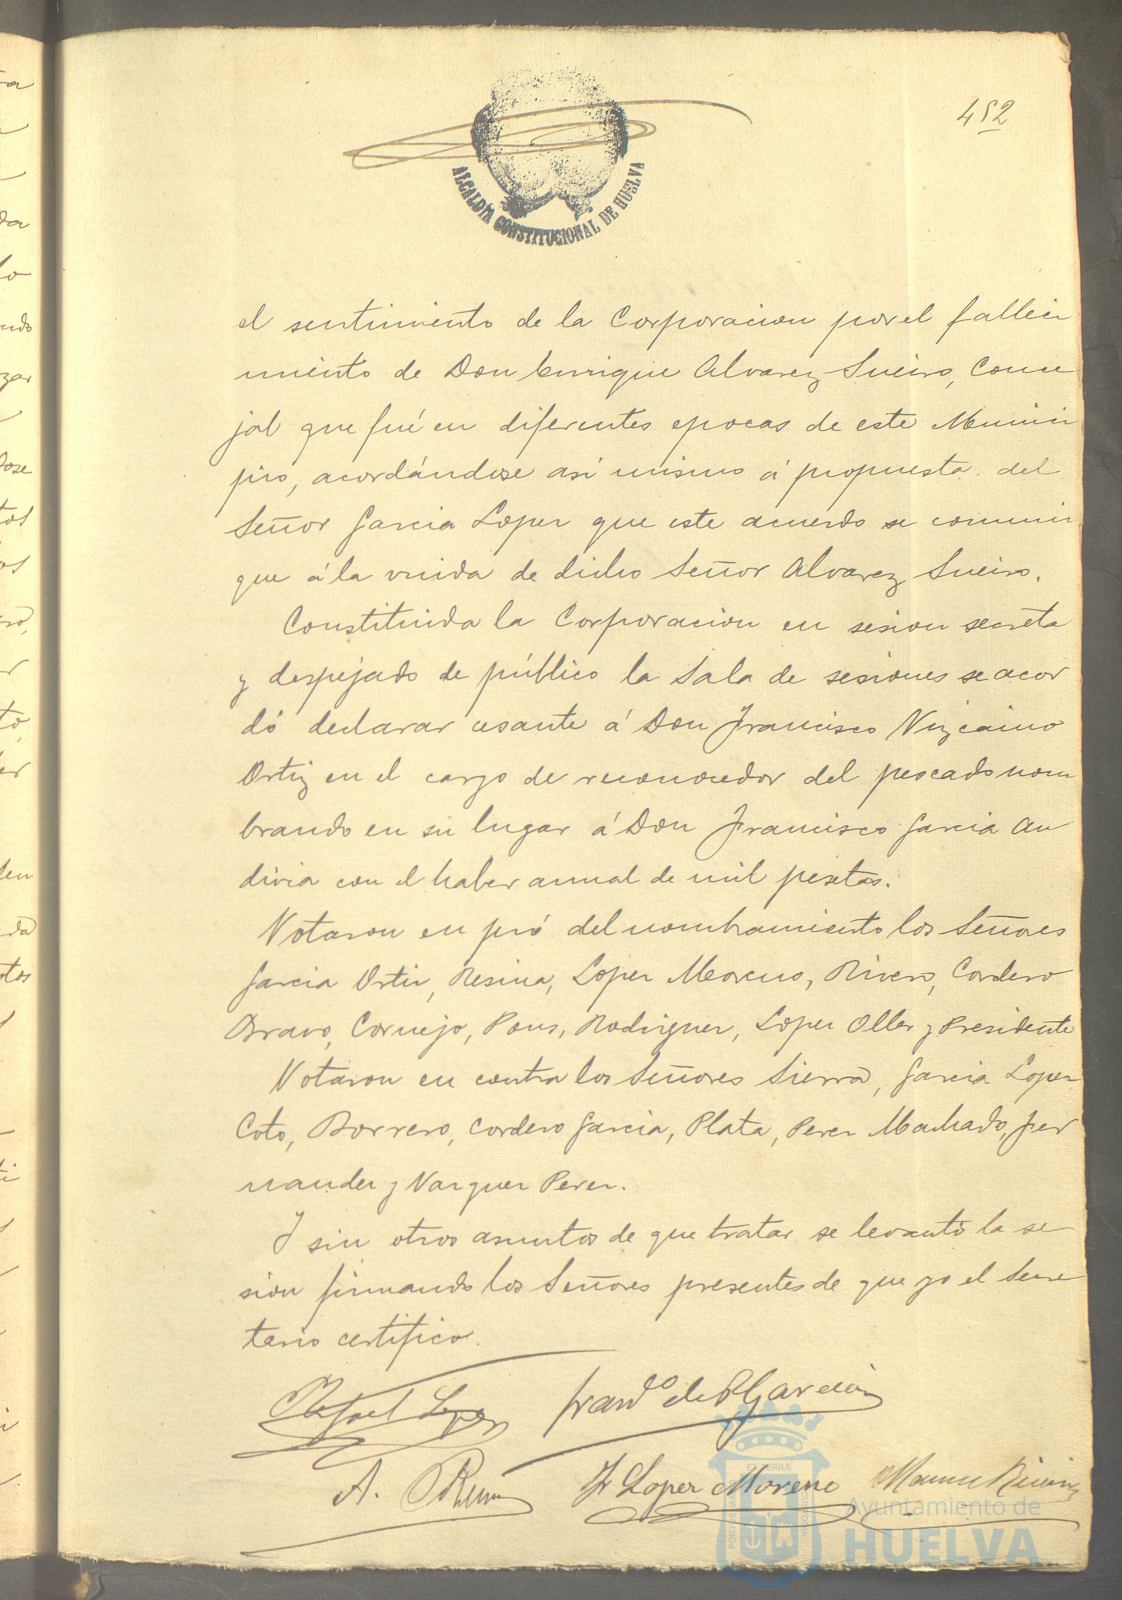 452
ALCALDÍA CONSTITUCIONAL DE HUELVA
el sentimiento de la Corporacion por el falleci
miento de Don Enrique Alvarez Sueiro, Conce
jal que fué en diferentes epocas de este Munici
pio, acordándose asi mismo á propuesta del
Señor Garcia Lopez que este acuerdo se comuni
que á la viuda de dicho Señor Alvarez Sueiro.
Constituida la Corporacion en sesion secreta
y despejado de público la Sala de sesiones se acor
dó declarar cesante á Don Francisco Vizcaino
Ortiz en el cargo de reconocedor del pescado nom
brando en su lugar á Don Francisco Garcia An
divia con el haber anual de mil pesetas.
Votaron en pró del nombramiento los Señores
Garcia Ortiz, Resina, Lopez Moreno, Rivero, Cordero
Bravo, Cornejo, Pons, Rodriguez, Lopez Oller y Presidente
Votaron en contra los Señores Sierra, Garcia Lopez
Coto, Borrero, Cordero Garcia, Plata, Perez Machado, Fer
nandez y Vazquez Perez.
Y sin otros asuntos de que tratar se levantó la se
sion firmando los Señores presentes de que yo el Secre
tario certifico.
Rafael Lopez
Franco de P Garcia
A.
Fr Lopez Moreno
Ayuntamiento de
HUELVA